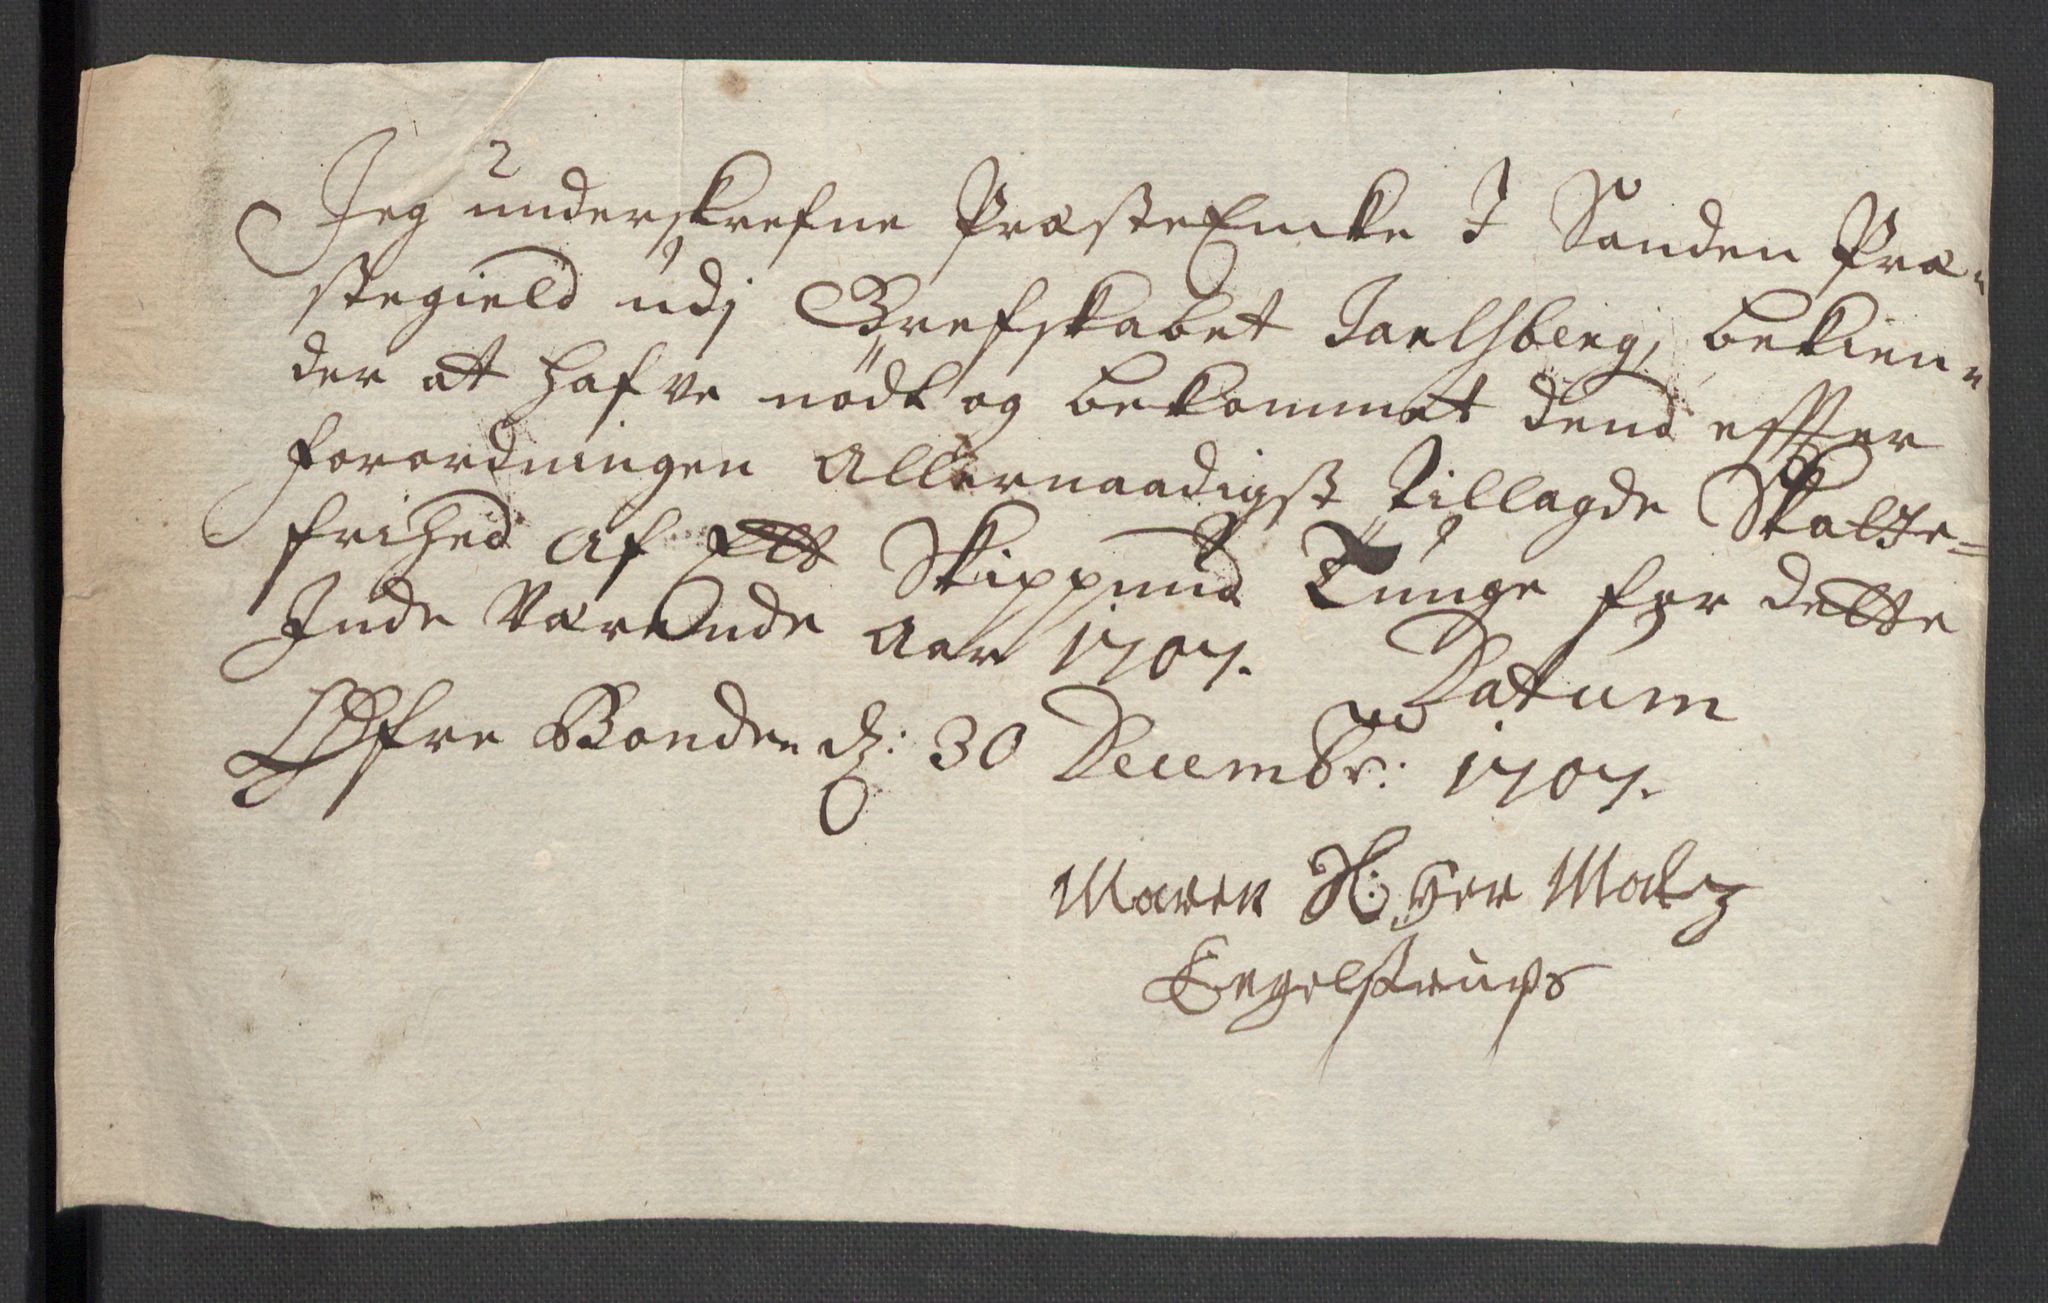 Jeg underskrefne PræsteEncke J Sanden Præ-
stegield udj Grefskabet Jarlsberg, bekien-
der at hafve nödt og bekommet dend effter
forordningen Allernaadigst tillagde Skatte-
frihed af Ett Skippund Tunge for dette
Inde Værende Aar 1707. Datum
Øfre Bonden d: 30 Decembr: 1707.
Maren H: her Matz
Engelstrups